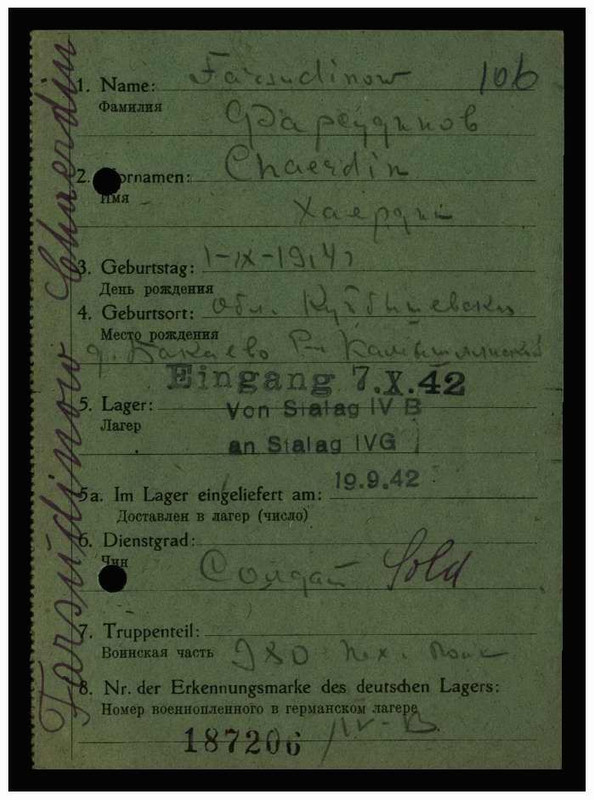 Farsudinow Chaerdin
106
1. Name: Farsudinow
Фамилия
2. Vornamen: Chaerdin
Имя
Хаердин
3. Geburtstag: 1-IX-1914
День рождения
4. Geburtsort: обл. Куйбышевская
Место рождения
д. Бакаево Р-н Камышлинский
Eingang 7.X.42
5. Lager: Von Stalag IV B
Лагер
an Stalag IVG
19.9.42
5a. Im Lager eingeliefert am:
Доставлен в лагер (число)
6. Dienstgrad:
Чин
Солдат Sold
7. Truppenteil:
Воинская часть 980 пех. полк
8. Nr. der Erkennungsmarke des deutschen Lagers:
Номер военнопленного в германском лагере
187206 /IV-B.